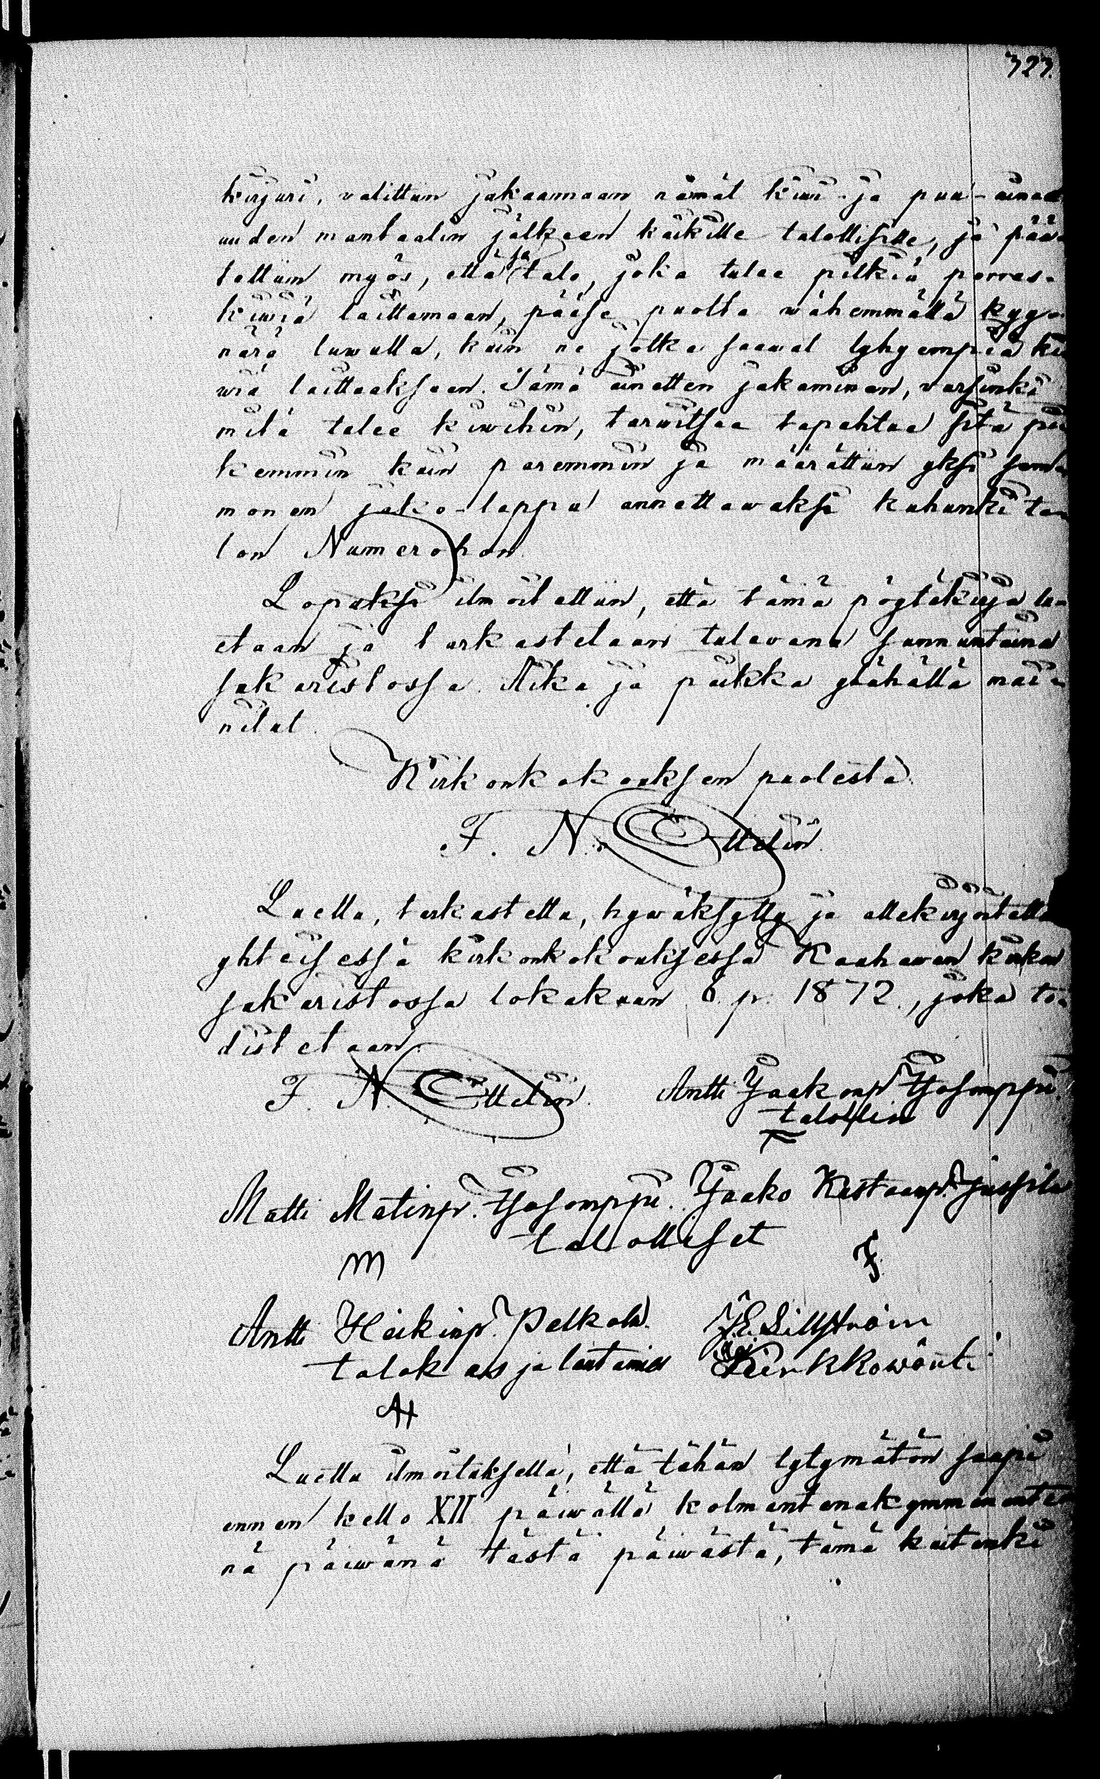 323.
kirjuri, valittiin jakaamaan nämät kiwi- ja puu-aineet
uuden mantaalin jälkeen kaikille talollisille, ja pää-
tettiin myös, että se talo, joka tulee pitkiä porras-
kiwiä laittamaan, pääse puolta wähemmällä kyynä-
närä luwulla, kuin ne jotka saawat lyhyempiä ki-
wiä laittaaksaan. Tämä ainetten jakaminen, varsinki
mitä tulee kiwihin, tarwitsee tapahtua sitä pi-
kemmin kuin paremmin ja määrättiin yksi sem-
monen jako-lappu annettawaksi kuhunki ta-
lon Numerohon.
Lopuksi ilmoitettiin, että tämä pöytäkirja lu-
etaan ja tarkastetaan tulevana sunnuntaina
sakaristossa. Aika ja paikka ylähällä mai-
nitut.
Kirkonkokouksen puolesta
F. N. Ottelin.
Luettu, tarkastettu, hywäksytty ja allekirjoitettu
yhteisessä kirkonkokouksessa Kauhavan kirkon
sakaristossa lokakuun 6 p. 1872, joka to-
distetaan.
F. N. Ottelin. Antti Jaakonp. Yosomppi.
talollin
Matti Matinp. Yosomppi. Jaako Kustaanp. Jussila
talolliset
Antti Heikinp. Pelkola. J E Lillström
talokas ja lautamies Kirkkowäärti
Luettu ilmoituksella, että tähän tytymätön saapi
ennen kello XII päiwällä kolmantenakymmenente-
nä päiwänä tästä päiwästä, tämä kuitenki